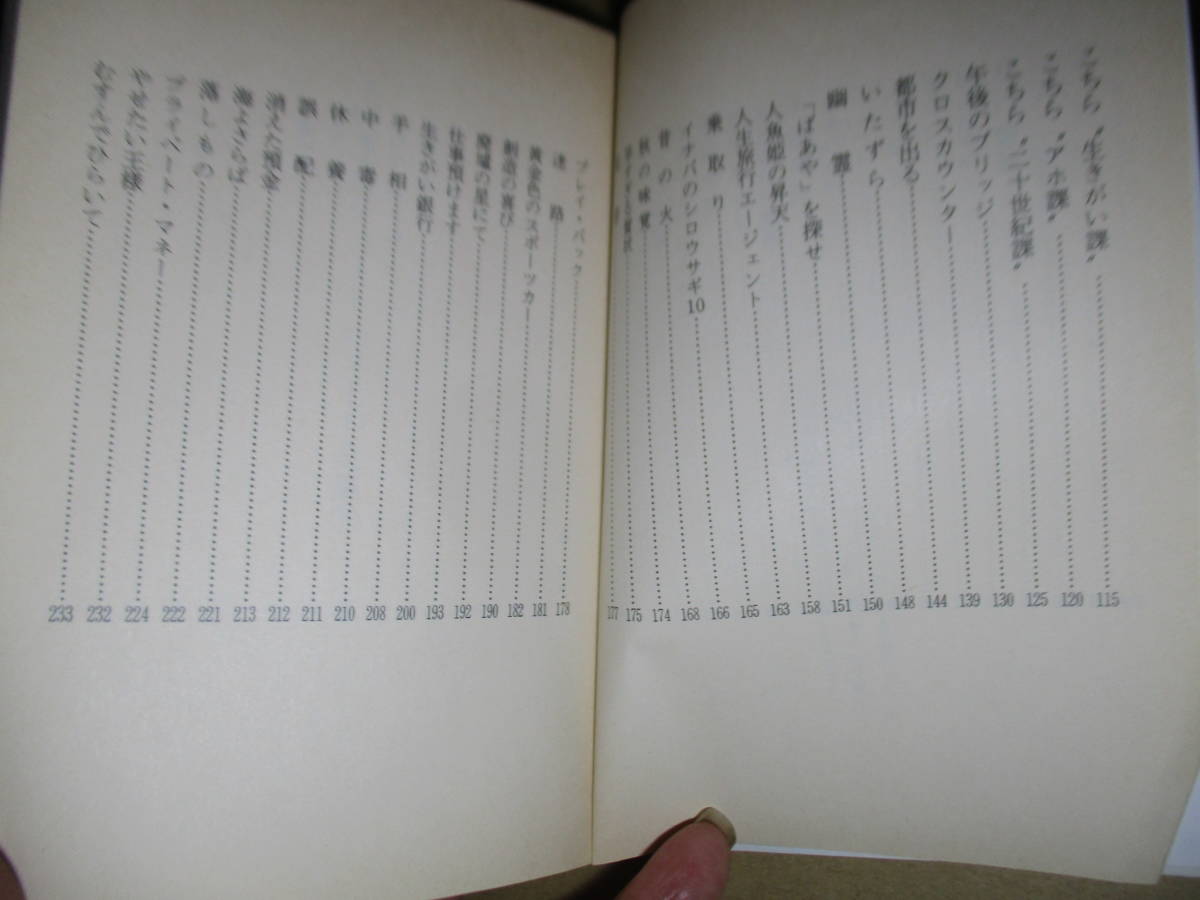 こちら〝生きがい課〟……115
こちら〝アホ課〟……120
こちら〝二十世紀課〟……125
午後のブリッジ……130
クロスカウンター……139
都市を出る……144
いたずら……148
幽霊……150
「ばあや」を探せ……151
人魚姫の昇天……158
人生旅行エージェント……163
乗取り……165
イナバのシロウサギ10……166
昔の女……168
秋の味覚……174
……175
……177
プレイ・バック……178
迷路……181
黄金色のスポーツカー……182
創造の喜び……190
廃墟の星にて……192
仕事預けます……193
生きがい銀行……200
手相……208
中毒……210
休養……211
誤配……212
消えた預金……213
海よさらば……221
落しもの……222
プライベート・マネー……224
やせたい王様……232
むすんでひらいて……233